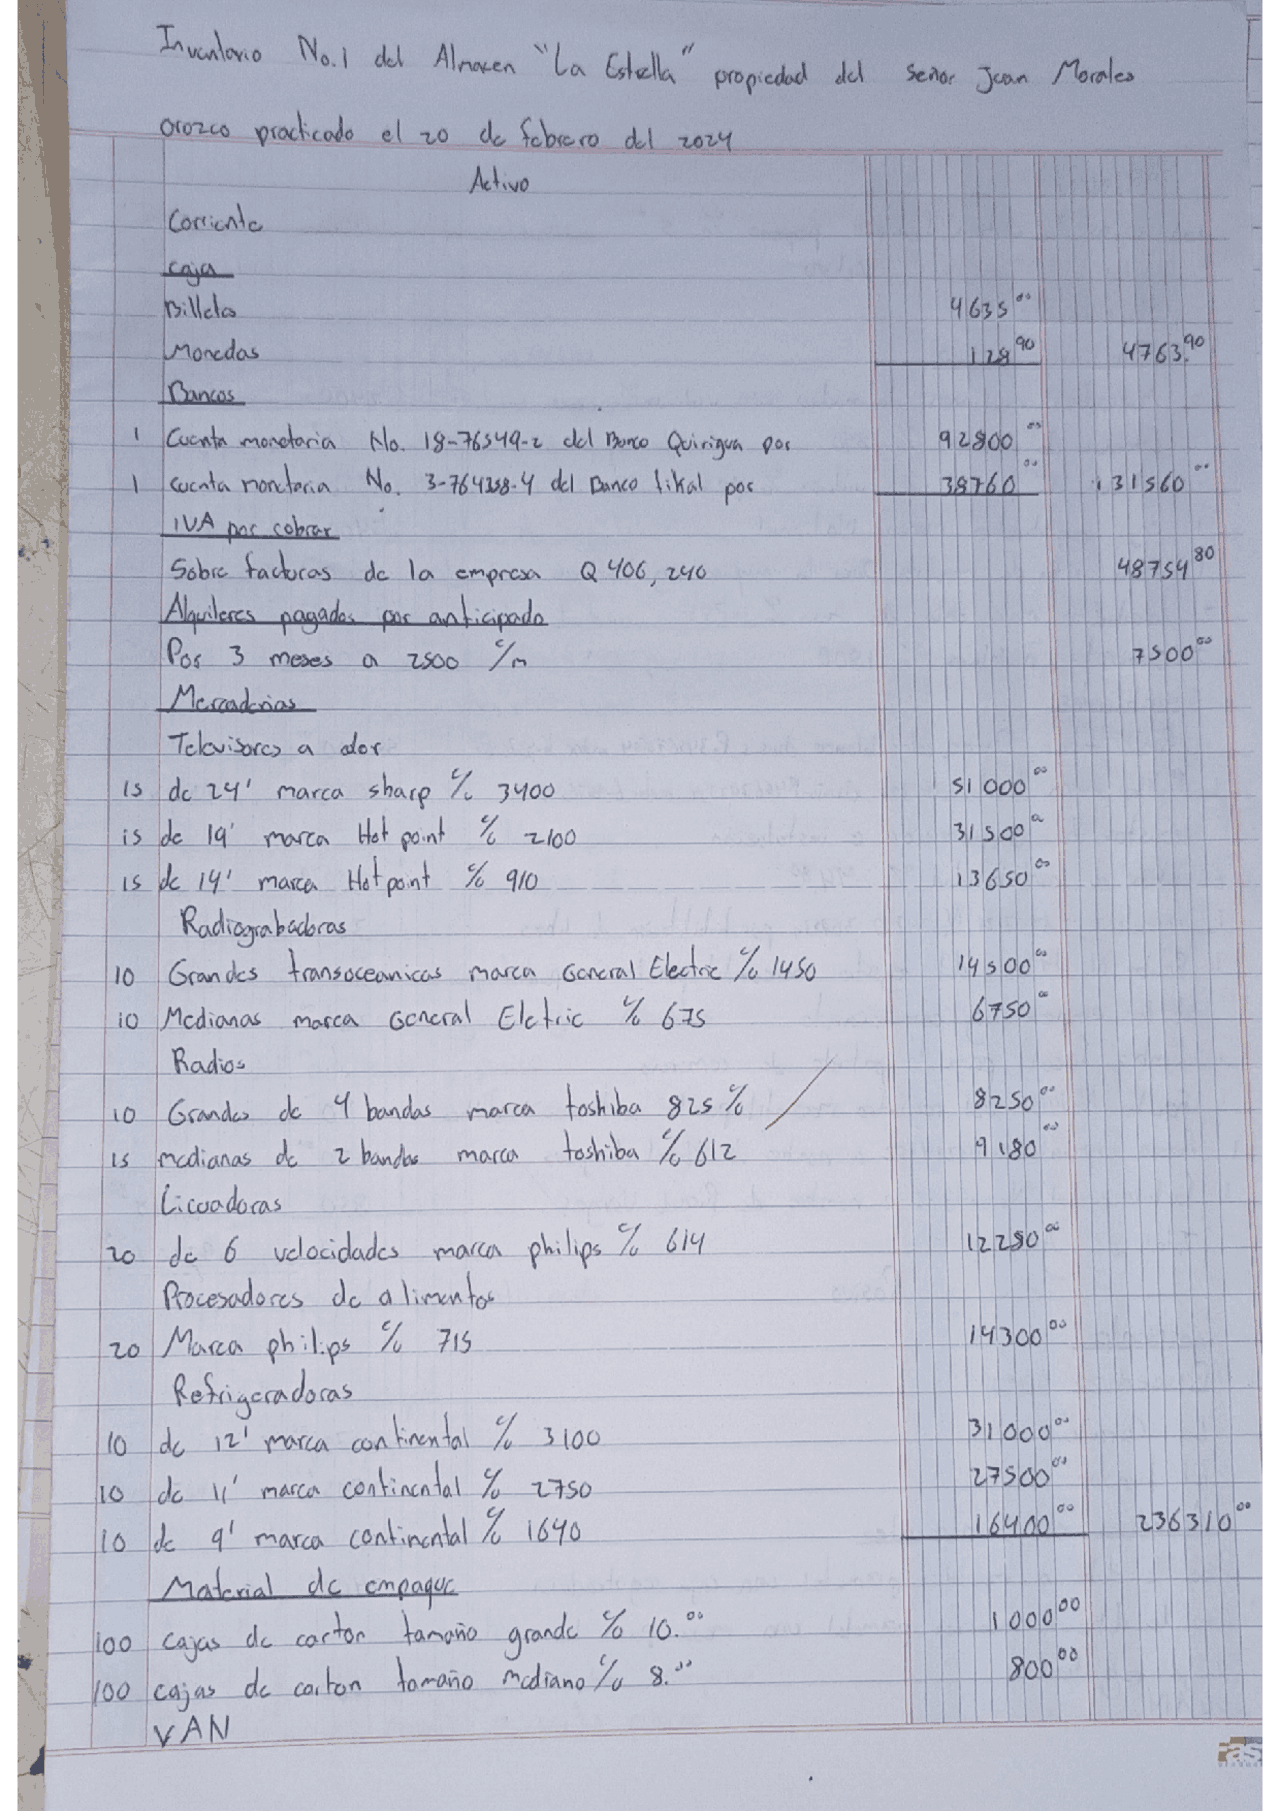 Inventario No.1 del Almacen "La Estrella" propiedad del señor Juan Morales
Orozco practicado el 20 de febrero del 2024
Activo
Corriente
Caja
Billetes 4635 00
Monedas 128 90 4763.90
Bancos
1 Cuenta monetaria No. 18-76549-2 del Banco Quirigua por 92800 00
1 cuenta monetaria No. 3-764358-4 del Banco tikal por 38760 00 131560 00
IVA por cobrar
Sobre facturas de la empresa Q 406,240 48754 80
Alquileres pagados por anticipado
Por 3 meses a 2500 c/m 7500 00
Mercaderias
Televisores a
15 de 24' marca sharp c/u 3400 51000 00
15 de 19' marca Hot point c/u 2100 31500 00
15 de 14' marca Hotpoint c/u 910 13650 00
Radiograbadoras
10 Grandes transoceanicas marca General Electric c/u 1450 14500 00
10 Medianas marca General Eletric c/u 675 6750 00
Radios
10 Grandes de 4 bandas marca toshiba 825 c/u 8250 00
15 medianas de 2 bandas marca toshiba c/u 612 9180 00
Licuadoras
20 de 6 velocidades marca philips c/u 614 12280 00
Procesadores de alimentos
20 Marca philips c/u 715 14300 00
Refrigeradoras
10 de 12' marca continental c/u 3100 31000 00
10 de 11' marca continental c/u 2750 27500 00
10 de 9' marca continental c/u 1640 16400 00 236310 00
Material de empaque
100 cajas de carton tamaño grande c/u 10.00 1000 00
100 cajas de carton tamaño mediano c/u 8.00 800 00
VAN